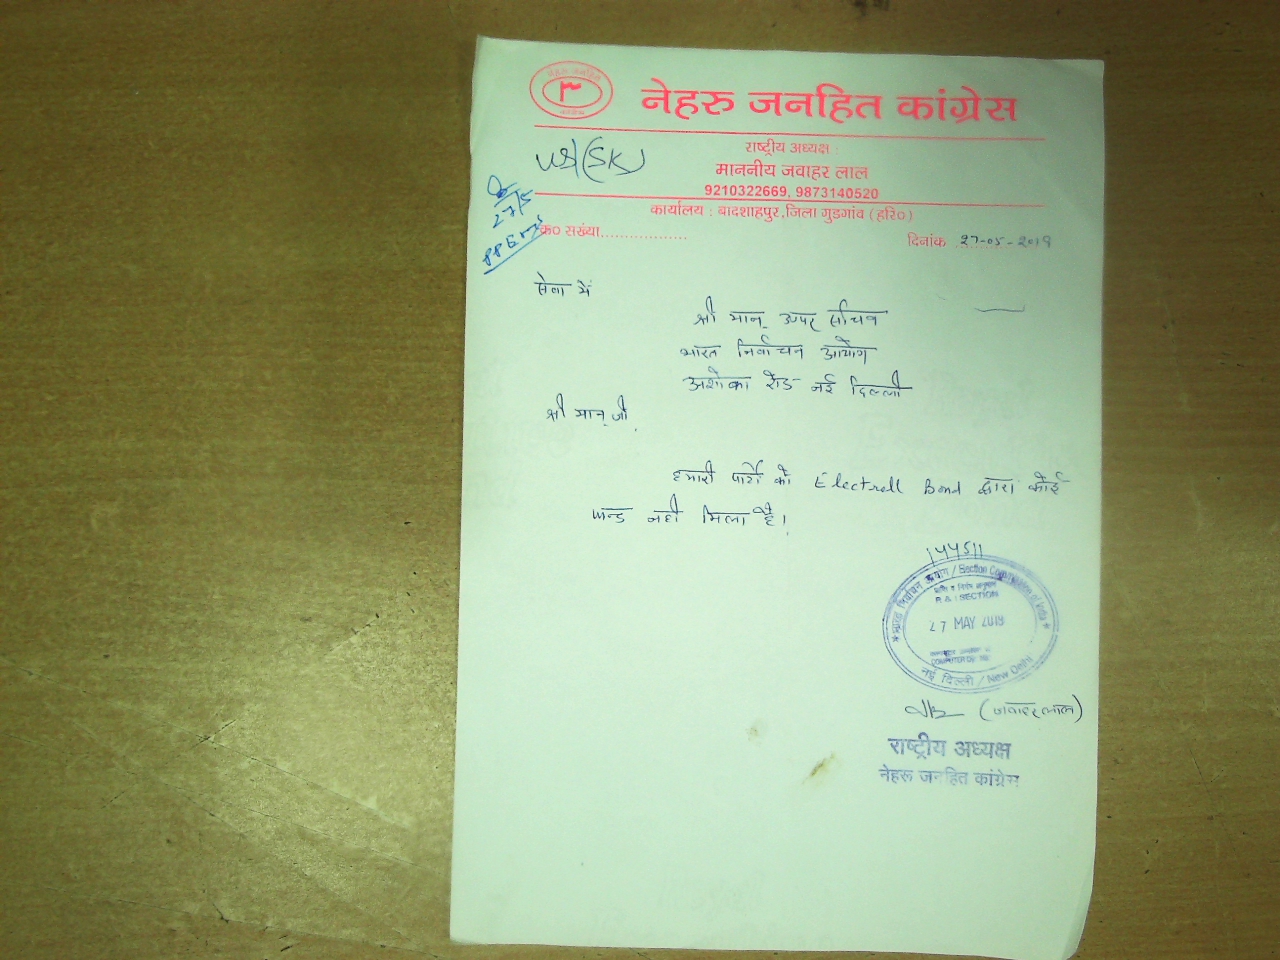 नेहरु जनहित
कांग्रेस
नेहरु जनहित कांग्रेस
राष्ट्रीय अध्यक्ष :
माननीय जवाहर लाल
9210322669, 9873140520
कार्यालय : बादशाहपुर,जिला गुडगांव (हरि०)
US(SK)
27/5
क्र० सख्या.................
दिनांक 27-05-2019
सेवा में
श्री मान् अपर सचिव
भारत निर्वाचन आयोग
अशोका रोड नई दिल्ली
श्री मान् जी,
हमारी पार्टी को Electroll Bond द्वारा कोई
फन्ड नही मिला है।
भारत निर्वाचन आयोग / Election Commission of India
R & I SECTION
27 MAY 2019
नई दिल्ली / New Delhi
(जवाहरलाल)
राष्ट्रीय अध्यक्ष
नेहरू जनहित कांग्रेस